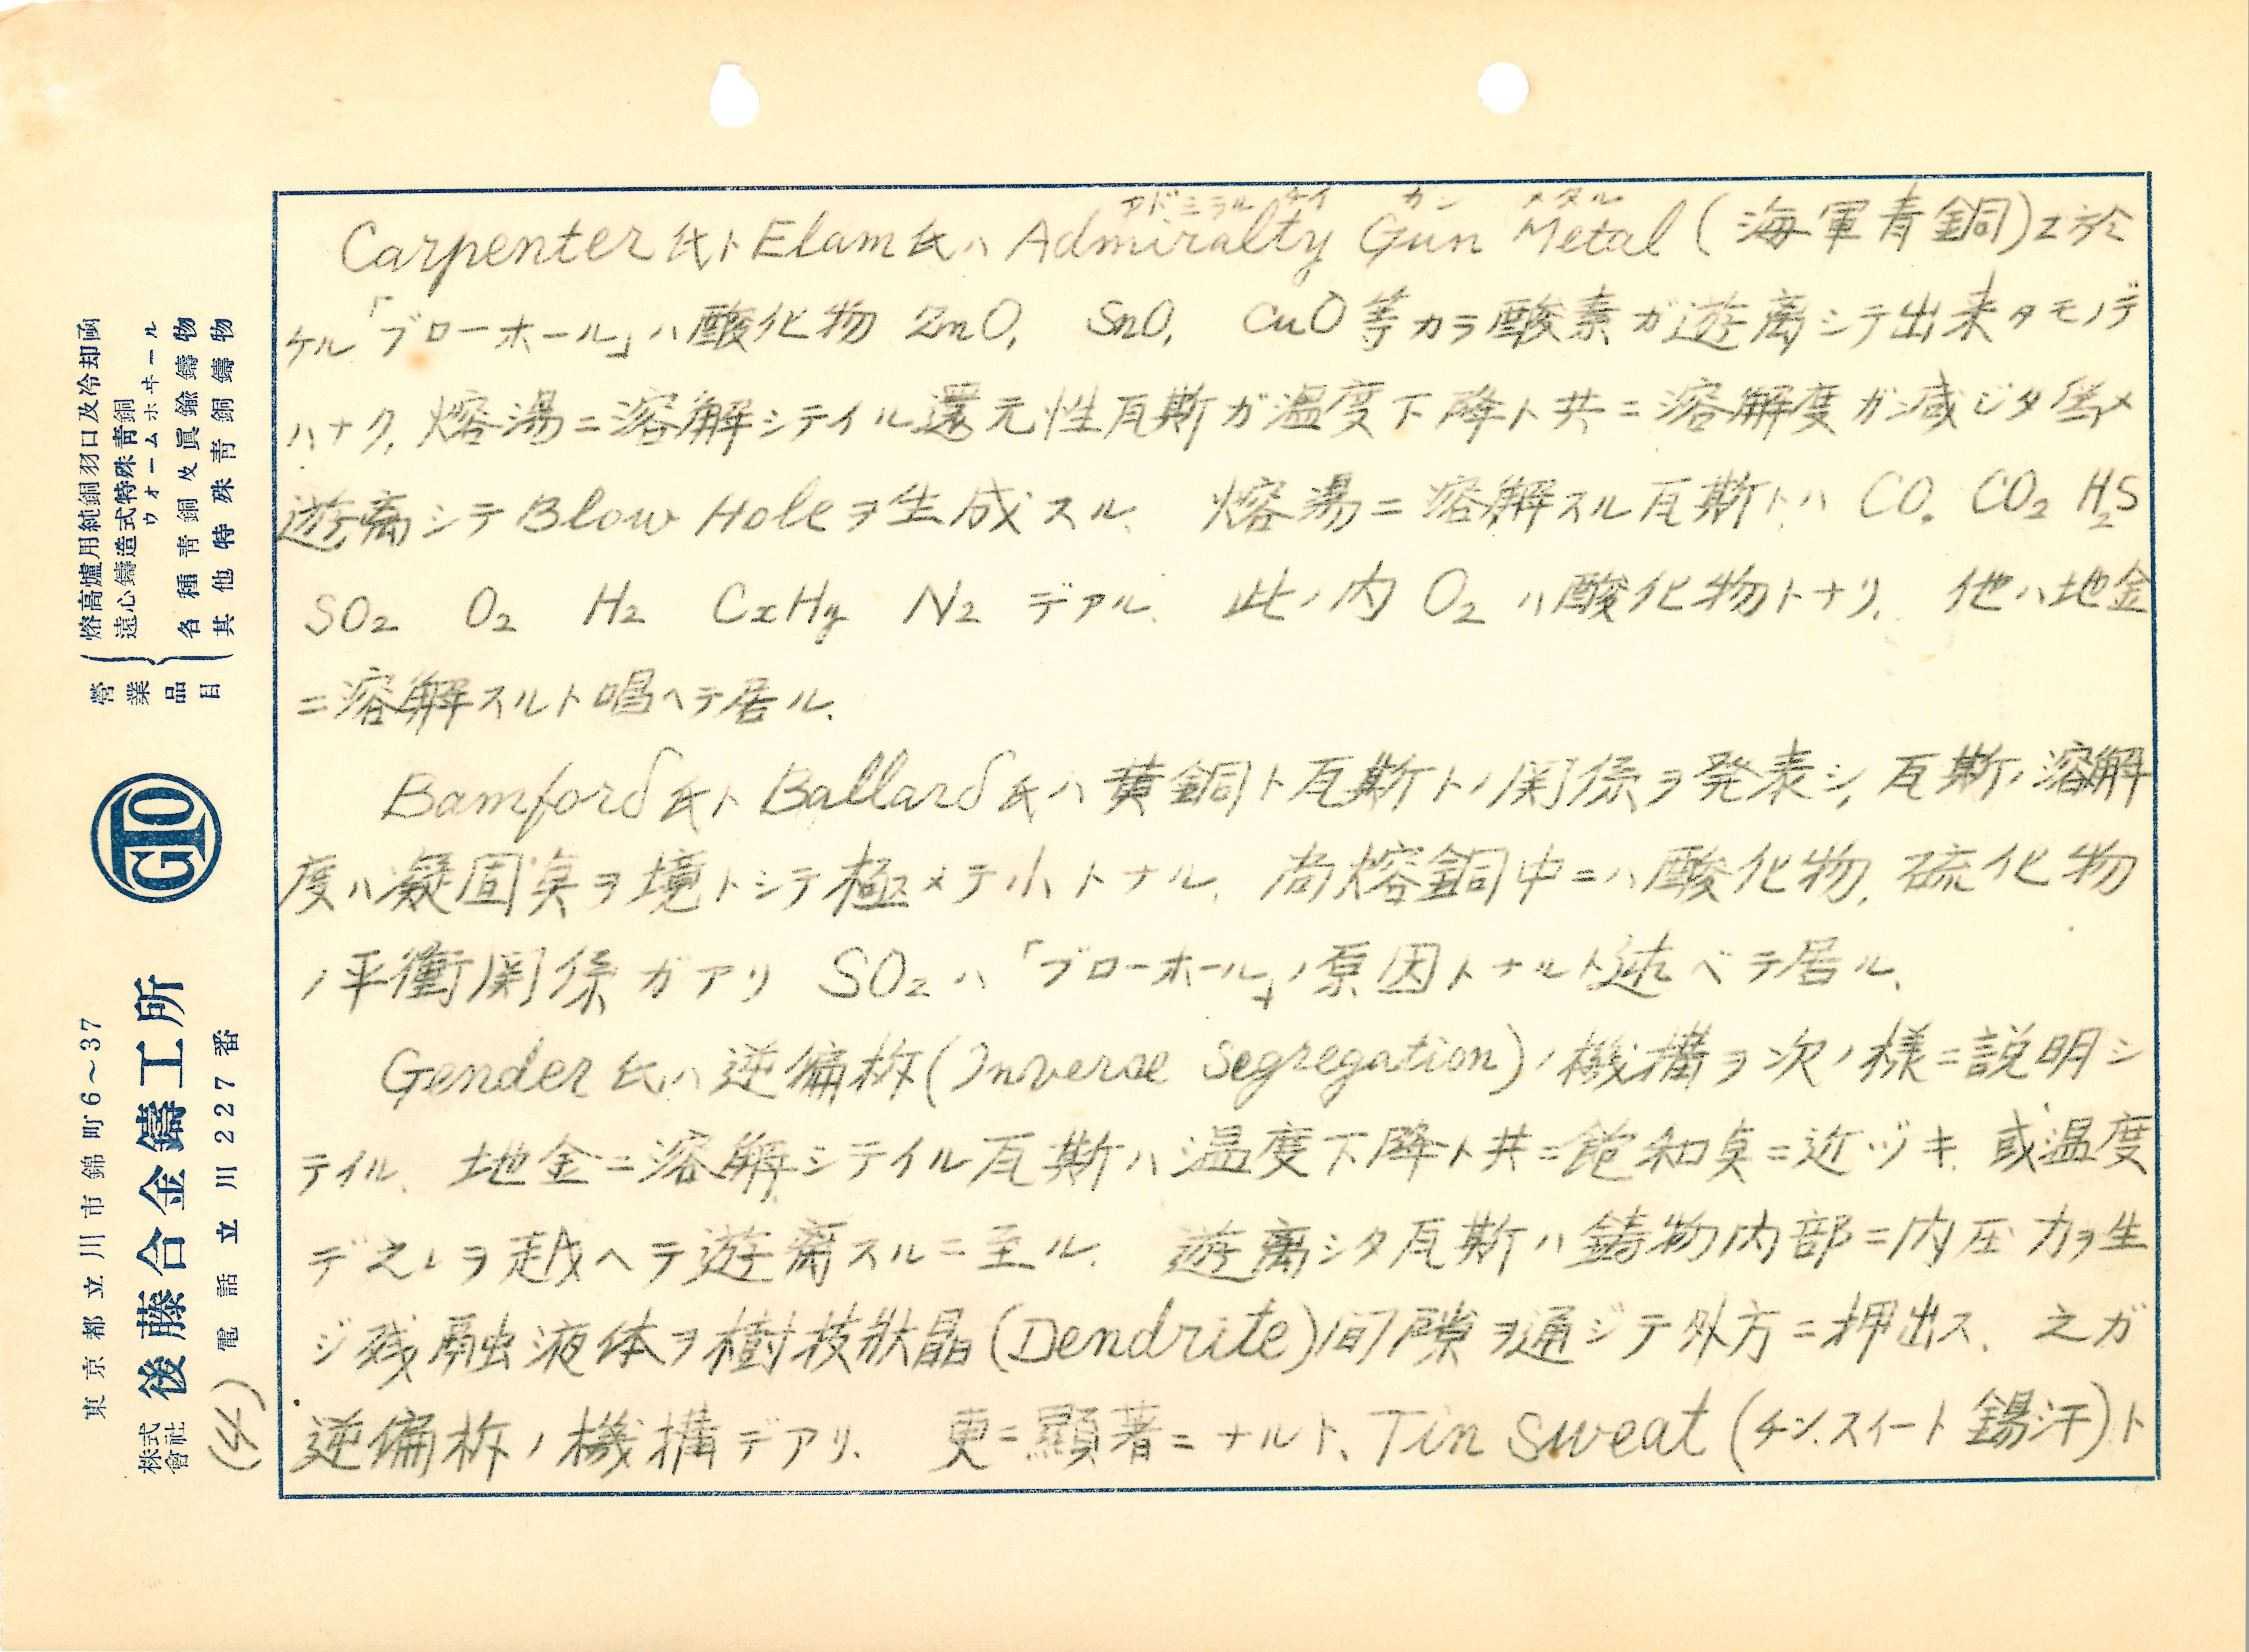 アドミラルテイ ガン メタル
Carpenter氏ト Elam氏ハ Admiralty Gun Metal (海軍青銅)ニ於
ケル「ブローホール」ハ酸化物 ZnO, SnO, CuO等カラ酸素ガ遊離シテ出来タモノデ
ハナク、熔湯ニ溶解シテイル還元性瓦斯ガ温度下降ト共ニ溶解度ガ減ジタ為メ
遊離シテBlow Holeヲ生成スル、 熔湯ニ溶解スル瓦斯トハ CO, CO₂ H₂S
SO₂ O₂ H₂ CxHy N₂ デアル、 此ノ内 O₂ ハ酸化物トナリ、 他ハ地金
ニ溶解スルト唱ヘテ居ル、
Bamford氏ト Ballard氏ハ黄銅ト瓦斯トノ関係ヲ発表シ、瓦斯ノ溶解
度ハ凝固点ヲ境トシテ極メテ小トナル、 尚熔銅中ニハ酸化物、硫化物
ノ平衡関係ガアリ SO₂ハ「ブローホール」ノ原因トナルト述ベテ居ル、
Gender氏ハ逆偏析(Inverse Segregation)ノ機構ヲ次ノ様ニ説明シ
テイル、 地金ニ溶解シテイル瓦斯ハ温度下降ト共ニ飽和点ニ近ヅキ、或温度
デ之レヲ越ヘテ遊離スルニ至ル、 遊離シタ瓦斯ハ鋳物内部ニ内圧力ヲ生
ジ残融液体ヲ樹枝状晶(Dendrite)ノ間隙ヲ通ジテ外方ニ押出ス、 之ガ
逆偏析ノ機構デアリ、 更ニ顕著ニナルト、Tin Sweat (チン、スイート 錫汗)ト
営業品目
熔高爐用純銅羽口及冷却函
遠心鑄造式特殊青銅
ウォームホヰール
各種青銅及眞鍮鑄物
其他特殊青銅鑄物
GTO
東京都立川市錦町6〜37
株式會社 後藤合金鑄工所
電話立川227番
(4)